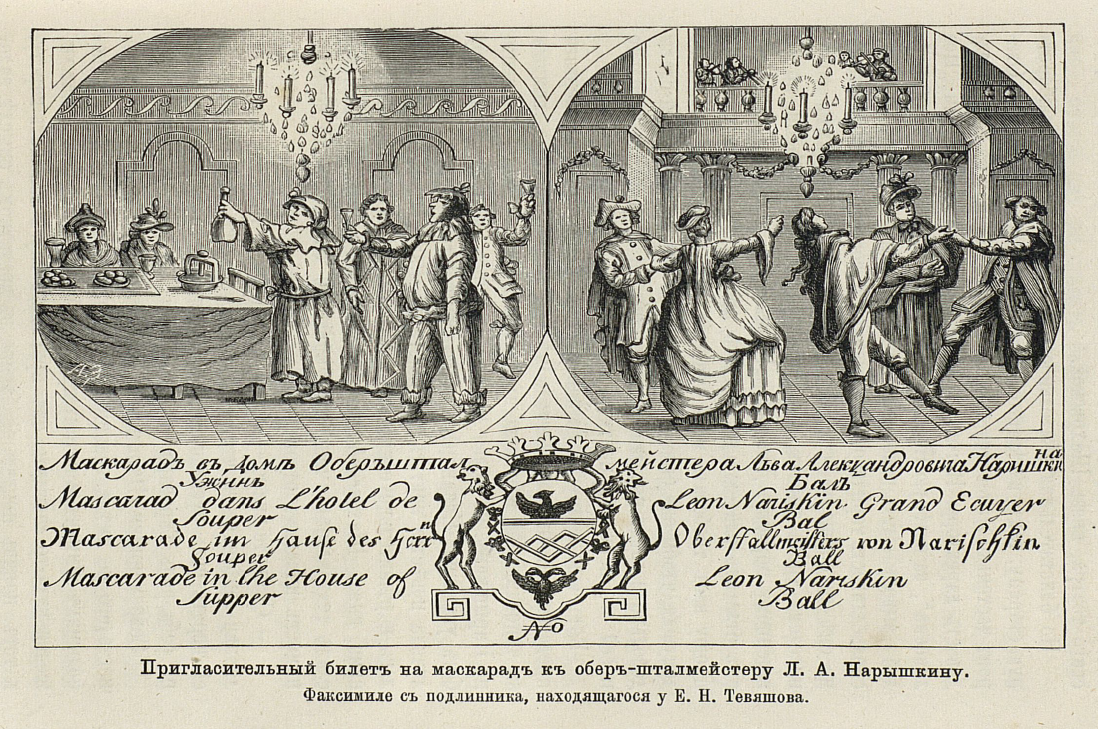 Маскарадъ въ домѣ Оберъштал мейстера Льва Александровича Наришкина
Ужинъ Балъ
Mascarad dans L'hotel de Leon Nariskin Grand Ecuyer
Souper Bal
Mascarade im Hause des Herrn Oberstallmeisters von Narischkin
Souper Ball
Mascarade in the House of Leon Nariskin
Supper Ball
No
Пригласительный билетъ на маскарадъ къ оберъ-шталмейстеру Л. А. Нарышкину.
Факсимиле съ подлинника, находящагося у Е. Н. Тевяшова.